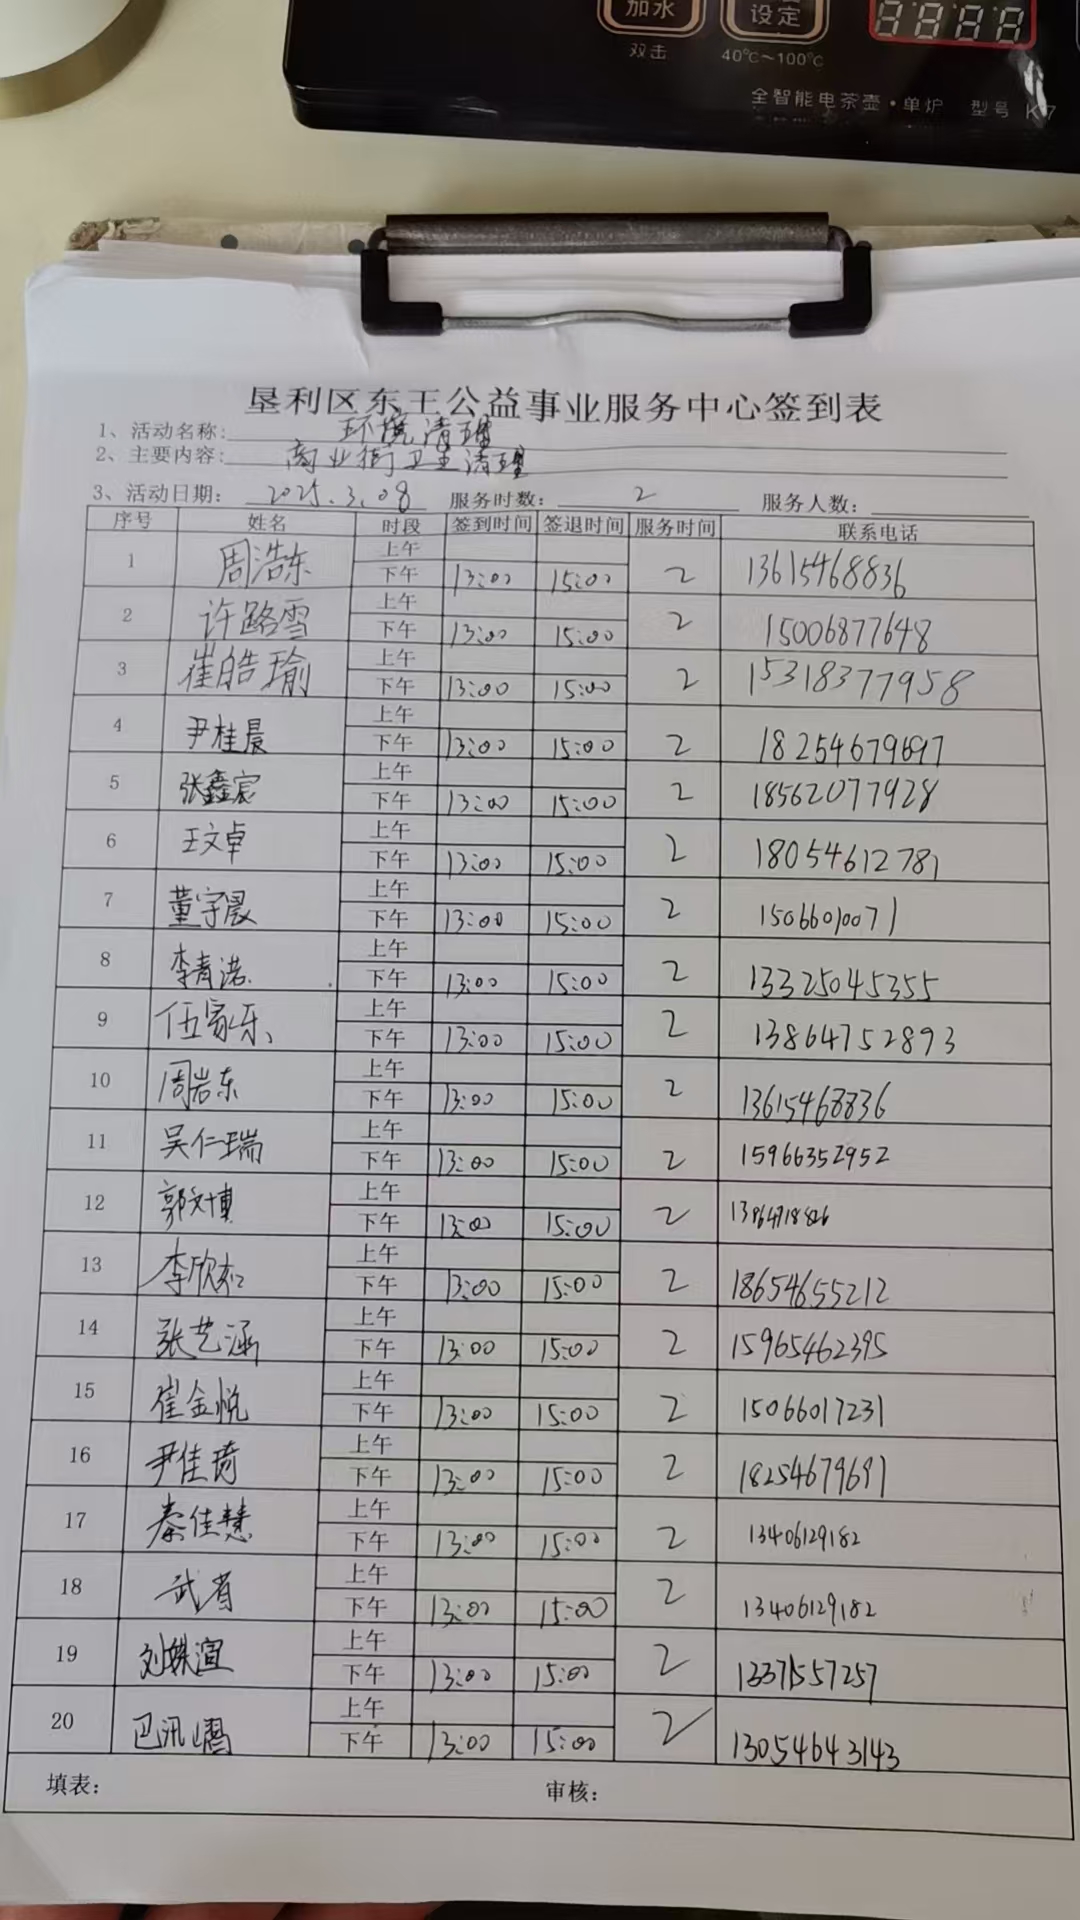 加水
设定
8888
双击
40℃～100℃
全智能电茶壶·单炉 型号 K7
垦利区东王公益事业服务中心签到表
1、活动名称: 环境清理
2、主要内容: 商业街卫生清理
3、活动日期: 2025.3.08 服务时数: 2 服务人数:
序号 姓名 时段 签到时间 签退时间 服务时间 联系电话
1 周浩东 上午
下午 13:00 15:00 2 13615468836
2 许路雪 上午
下午 13:00 15:00 2 15006877648
3 崔皓瑜 上午
下午 13:00 15:00 2 15318377958
4 尹桂晨 上午
下午 13:00 15:00 2 18254679697
5 张鑫宸 上午
下午 13:00 15:00 2 18562077928
6 王文卓 上午
下午 13:00 15:00 2 18054612781
7 董宇晟 上午
下午 13:00 15:00 2 15066010071
8 李青诺 上午
下午 13:00 15:00 2 13325045355
9 伍家乐 上午
下午 13:00 15:00 2 13864752893
10 周岩东 上午
下午 13:00 15:00 2 13615468836
11 吴仁瑞 上午
下午 13:00 15:00 2 15966352952
12 郭文博 上午
下午 13:00 15:00 2
13 李欣和 上午
下午 13:00 15:00 2 18654655212
14 张艺涵 上午
下午 13:00 15:00 2 15965462395
15 崔金悦 上午
下午 13:00 15:00 2 15066017231
16 尹佳琦 上午
下午 13:00 15:00 2 18254679691
17 秦佳慧 上午
下午 13:00 15:00 2 13406129182
18 武省 上午
下午 13:00 15:00 2 13406129182
19 刘姝渲 上午
下午 13:00 15:00 2 13371557257
20 上午
下午 13:00 15:00 2 13054643143
填表: 审核: